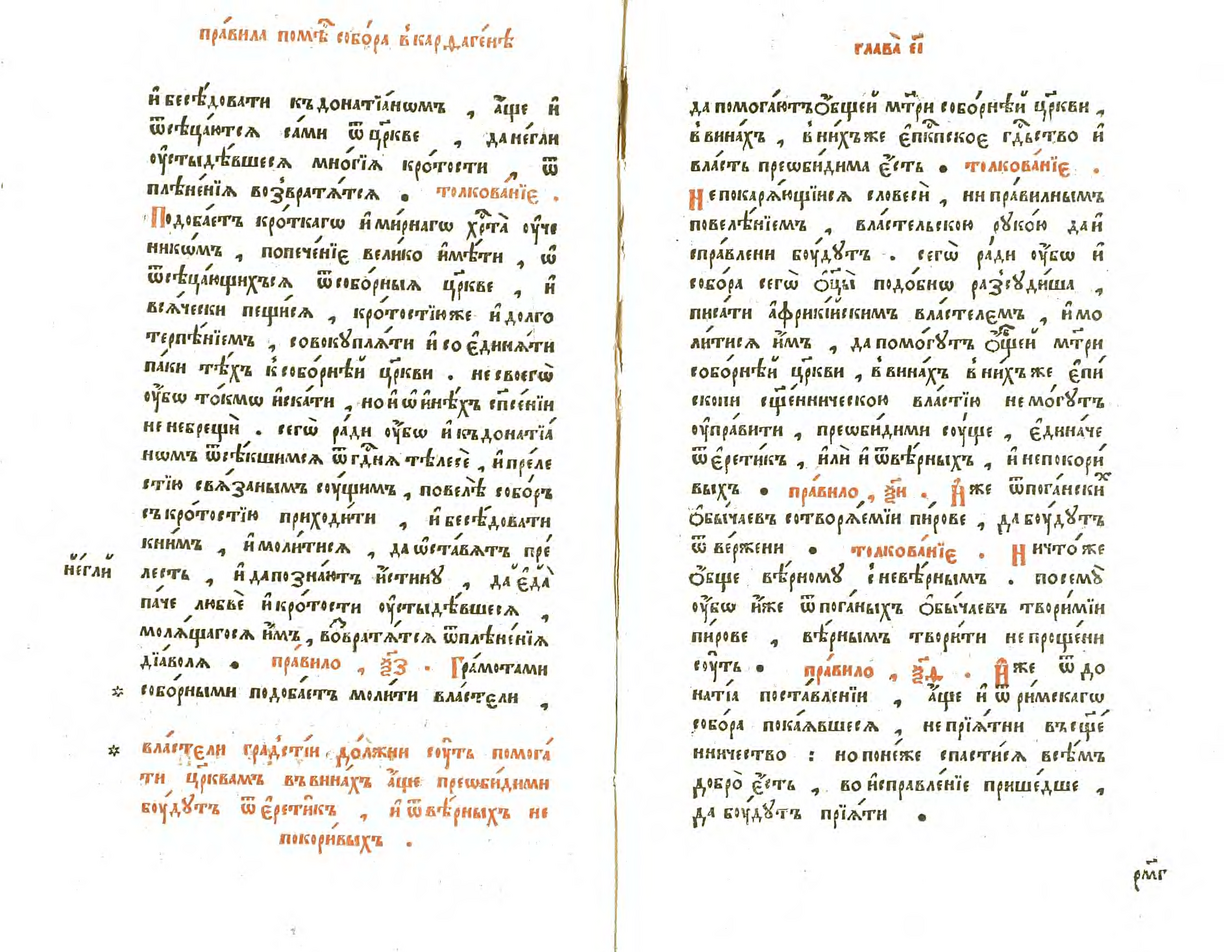 пра́вила помѣ́стⷩ҇ собо́ра в̾кардаге́нѣ
и҆ бесѣ́довати къ донатїа́нѡмъ , а҆́ще и҆
ѿсѣца́ются са́ми ѿ цр҃кве , да не́гли
оу҆стыдѣ́вшеся мно́гїѧ кро́тости , ѿ
плѣне́нїѧ воз̾вратѧ́тсѧ . толкова́нїе .
Подоба́етъ кро́ткагѡ и҆ ми́рнагѡ хрⷭ҇та̀ оу҆че
никѡ́мъ , попече́нїе вели́ко и҆мѣ́ти , ѡ҆
ѿсѣца́ющихъсѧ ѿ собо́рныѧ цр҃кве , и҆
всѧ́чески пещи́сѧ , кро́тостїю же и҆ до́лго
терпѣ́нїемъ , совокуплѧ́ти и҆ соединѧ́ти
па́ки тѣ́хъ к̾ собо́рнѣй цр҃кви . не своегѡ̀
оу҆́бѡ то́кмѡ и҆ска́ти , но и҆ ѡ҆ и҆нѣ́хъ сп҃се́нїи
не небрещѝ . сегѡ̀ ра́ди оу҆́бѡ и҆ къ донатїа́
нѡмъ ѿсѣ́кшимсѧ ѿ гдⷭ҇нѧ тѣлесѐ , и҆ пре́ле
стїю свѧ́занымъ соу́щимъ , повелѣ̀ собо́ръ
съ кро́тостїю приходи́ти , и҆ бесѣ́довати
к̾ни́мъ , и҆ моли́тисѧ , да ѡ҆ста́вѧтъ пре́
лесть , и҆ да позна́ютъ и҆́стину , да є҆да̀
не́гли
па́че любвѐ и҆ кро́тости оу҆стыдѣ́вшесѧ ,
молѧ́щагосѧ и҆́мъ , возвратѧ́тсѧ ѿ плѣне́нїѧ
дїа́волѧ . пра́вило , ѯ҃з . Гра́мотами
* собо́рными подоба́етъ моли́ти вла́стели ,
* вла́стели гра́дстїи до́лжни соу́ть помога́
ти цр҃квамъ въ вина́хъ а҆́ще преѡби́дими
боу́дутъ ѿ є҆рети̑къ , и҆ ѿ вѣ́рныхъ не
покори́выхъ .
глава̀ є҃і
да помога́ютъ ѻ҆́бщей мт҃ри собо́рнѣй цр҃кви ,
в̾ вина́хъ , в̾ ни́хъже є҆пⷭ҇кпское гдⷭ҇ьство и҆
вла́сть преѡби́дима є҆́сть . толкова́нїе .
Не покарѧ́ющїисѧ словесѝ , ни пра́вилнымъ
повелѣ́нїемъ , вла́стельскою руко́ю да и҆
спра́влени боу́дутъ . сегѡ̀ ра́ди оу҆́бѡ и҆
собо́ра сегѡ̀ ѻ҆ц҃ы̀ подо́бнѡ раз̾суди́ша ,
писа́ти а҆фрики́йскимъ вла́стелемъ , и҆ мо
ли́тисѧ и҆́мъ , да помо́гутъ ѻ҆́бщей мт҃ри
собо́рнѣй цр҃кви , в̾ вина́хъ в̾ ни́хъже є҆пи́
скопи сщ҃е́нническою вла́стїю не мо́гутъ
оу҆пра́вити , преѡби́дими соу́ще , є҆дина́че
ѿ є҆рети́къ , и҆лѝ и҆ ѿ вѣ́рныхъ , и҆ непокори́
выхъ . пра́вило , ѯ҃и . Иже ѿ пога́нскихъ
ѻ҆бы́чаевъ сотворѧ́емїи пи́рове , да боу́дутъ
ѿве́ржени . толкова́нїе . Ничто́же
ѻ҆́бще вѣ́рному с̾ невѣ́рнымъ . по семꙋ̀
оу҆́бѡ и҆̀же ѿ пога́ныхъ ѻ҆бы́чаевъ твори́мїи
пи́рове , вѣ́рнымъ твори́ти не проще́ни
соу́ть . пра́вило , ѯ҃д . Иже ѿ до
натїа поста́вленїи , а҆́ще и҆ ѿ ри́мскагѡ
собо́ра пока́ѧвшесѧ , не прїѧ́тни въ сщ҃е́
нничество : но поне́же спасти́сѧ всѣ́мъ
добро̀ є҆́сть , во и҆справле́нїе прише́дше ,
да боу́дутъ прїѧ́ти .
рм҃г